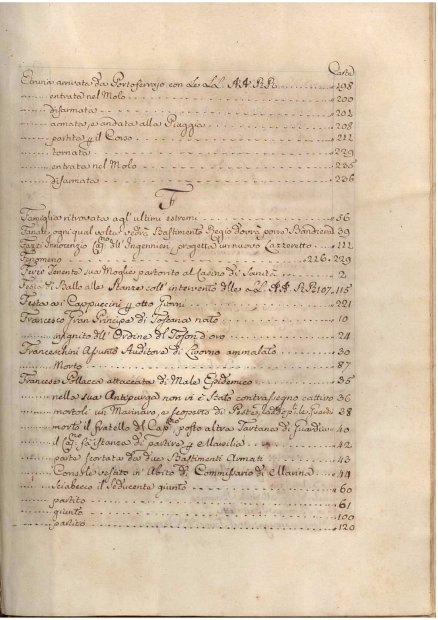 Carte
Etruria arrivata da Portoferrajo con Le LL. AA. RR. 198
entrata nel Molo 200
disarmata 201
armata, e andata alla Piaggia 208
partita p il Corso 211
tornata 229
entrata nel Molo 235
disarmata 236
F
Famiglia ritrovata agl' ultimi estremi 56
Fanale, ogni qual volta Bastimento Regio dovrà porre Bandiera 39
Innocenzio Cap.no dell' Ingegnieri progetta un nuovo Lazzeretto 112
Fenomeno 226. 229
Tenente sua Moglie partorito al Casino di Sanità 2
Festa di Ballo alle Stanze coll' intervento delle LL. AA. RR. 107. 115
Festa a i Cappuccini p otto Giorni 221
Francesco Gran Principe di Toscana nato 10
insignito dell' Ordine del Toson d'oro 24
Franceschini Auditore di Livorno ammalato 30
Morto 87
Francese Pollacca attaccata di Male Epidemico 35
nella sua Antepurgo non vi è stato contrassegno cattivo 36
mortoli un Marinaro, e scoperto di Peste 38
morto il fratello del Cap.no, posto altra Tartana di Guardia 40
il Cap.no fà istanza di partire p Marsilia 42
parte scortata da due Bastimenti Armati 43
Console vestito in Abito di Commissario di Marina 44
Sciabecco il Seducente giunto 60
partito 61
giunto 100
partito 120